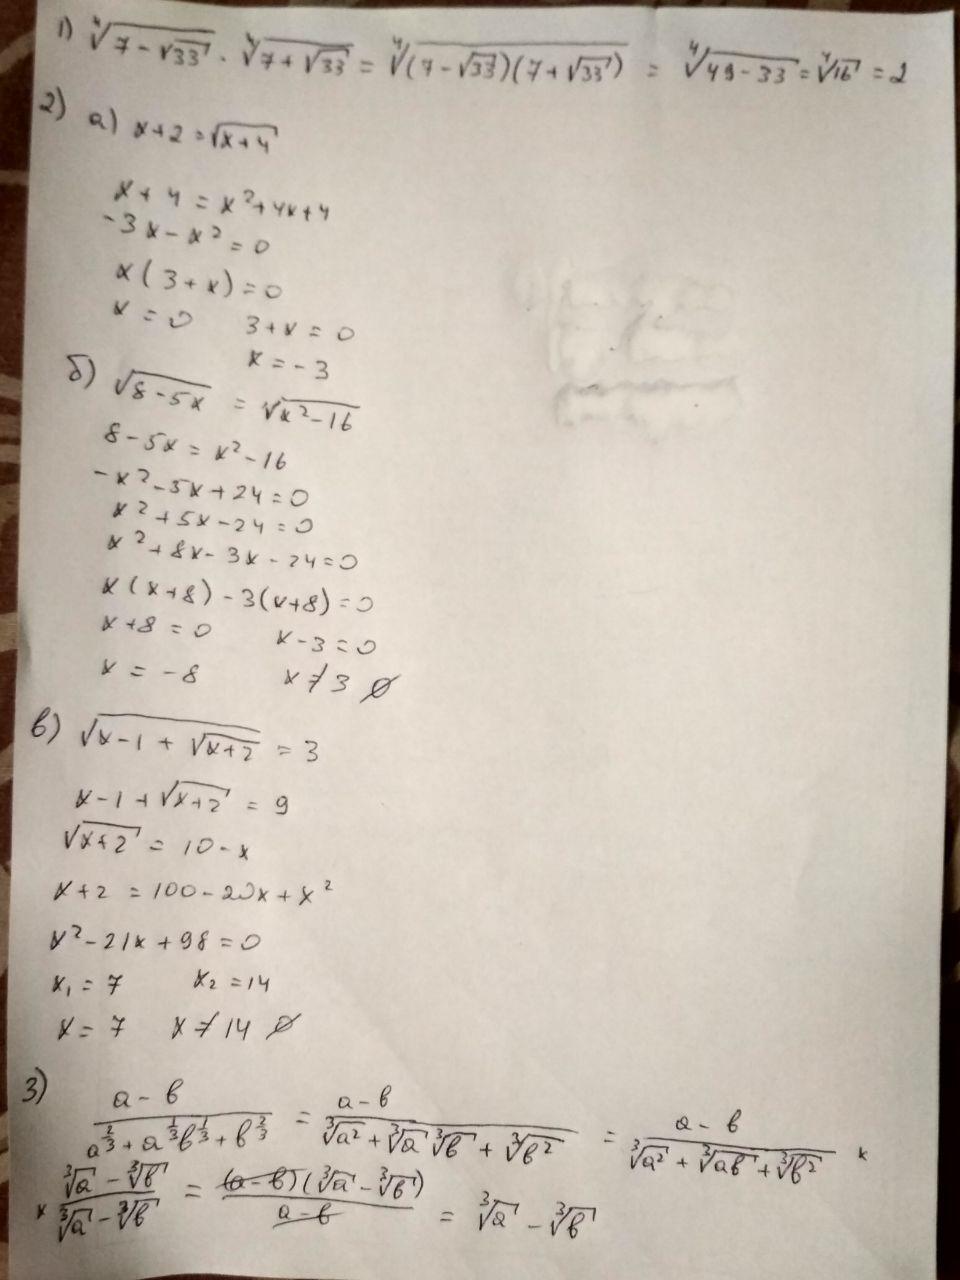 1) ∜(7 - √33) · ∜(7 + √33) = ∜((7 - √33)(7 + √33)) = ∜(49 - 33) = ∜16 = 2
2) а) x + 2 = √(x + 4)
x + 4 = x² + 4x + 4
-3x - x² = 0
x(3 + x) = 0
x = 0 3 + x = 0
x = -3
б) √(8 - 5x) = √(x² - 16)
8 - 5x = x² - 16
-x² - 5x + 24 = 0
x² + 5x - 24 = 0
x² + 8x - 3x - 24 = 0
x(x + 8) - 3(x + 8) = 0
x + 8 = 0 x - 3 = 0
x = -8 x ≠ 3 ∅
в) √(x - 1 + √(x + 2)) = 3
x - 1 + √(x + 2) = 9
√(x + 2) = 10 - x
x + 2 = 100 - 20x + x²
x² - 21x + 98 = 0
x₁ = 7 x₂ = 14
x = 7 x ≠ 14 ∅
3) (a - b)/(a^(2/3) + a^(1/3)b^(1/3) + b^(2/3)) = (a - b)/(∛a² + ∛a ∛b + ∛b²) = (a - b)/(∛a² + ∛(ab) + ∛b²) ×
× (∛a - ∛b)/(∛a - ∛b) = ((a - b)(∛a - ∛b))/(a - b) = ∛a - ∛b